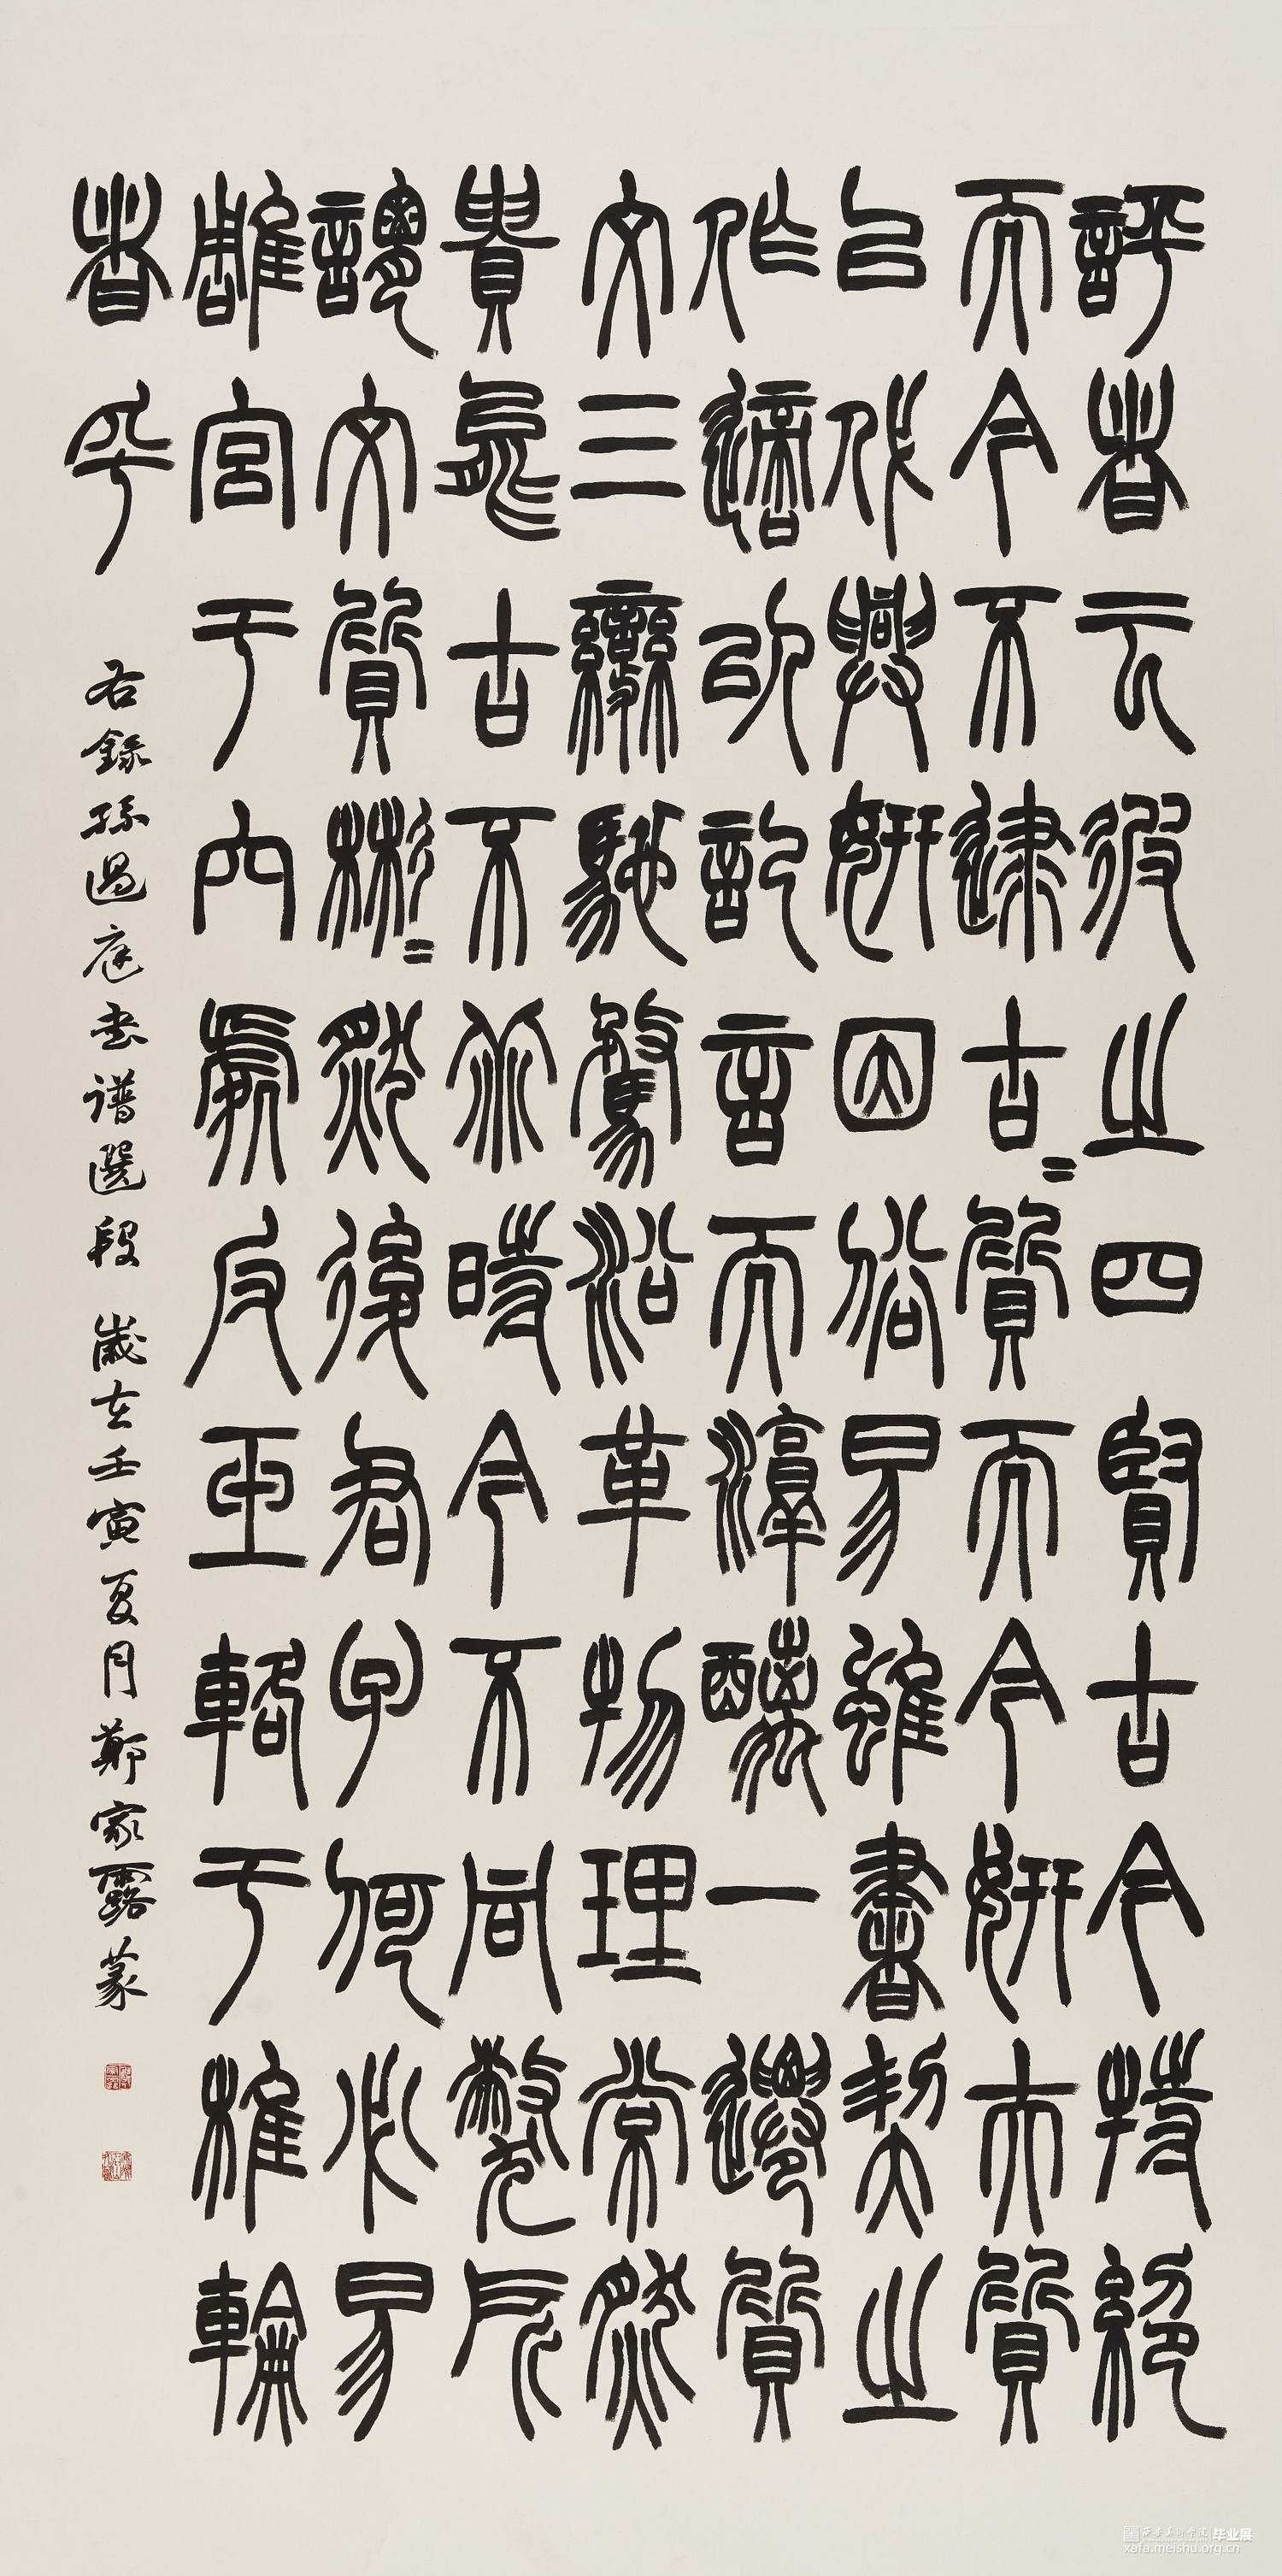 評者云彼之四賢古今特絕
而今不逮古=質而今妍夫質
以代興妍因俗易雖書契之
作適以記言而淳醨一遷質
文三變馳騖沿革物理常然
貴能古不乖時今不同弊所
謂文質彬=然後君子何必易
雕宮于穴處反玉輅于椎輪
者乎
右錄孫過庭書譜選段 歲在壬寅夏月鄭家露篆
毕业展
xafa.meishu.org.cn